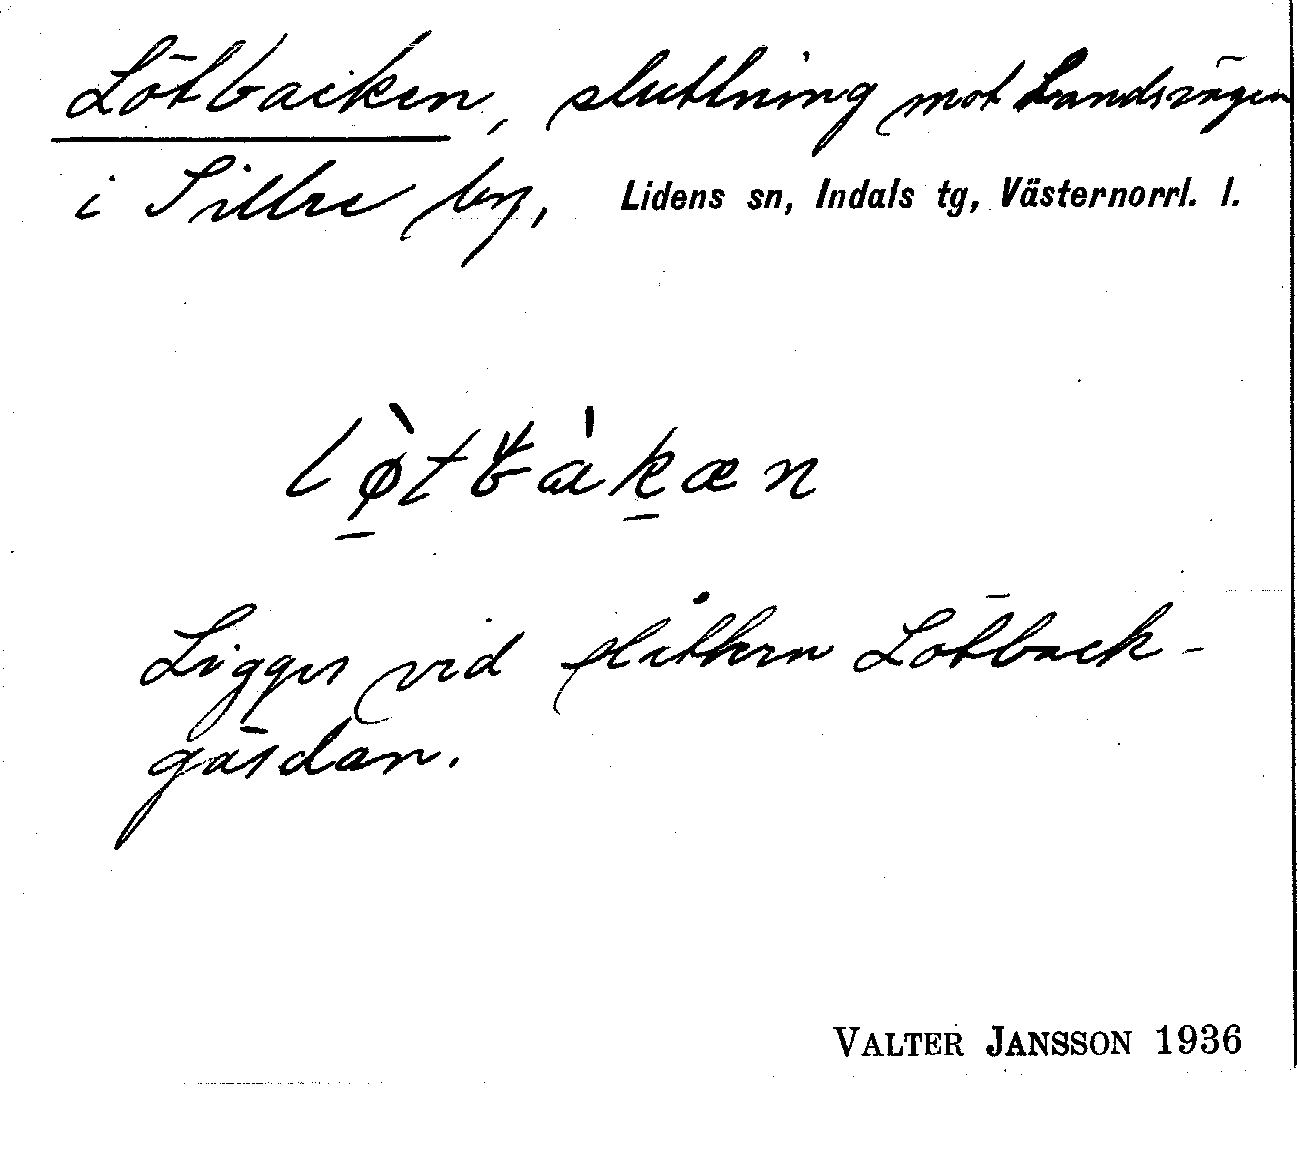 Lötbacken, sluttning mot Landsvägen
i Sillre by, Lidens sn, Indals tg, Västernorrl. l.
Ligger vid slåttern Lötback-
gärdan.
VALTER JANSSON 1936